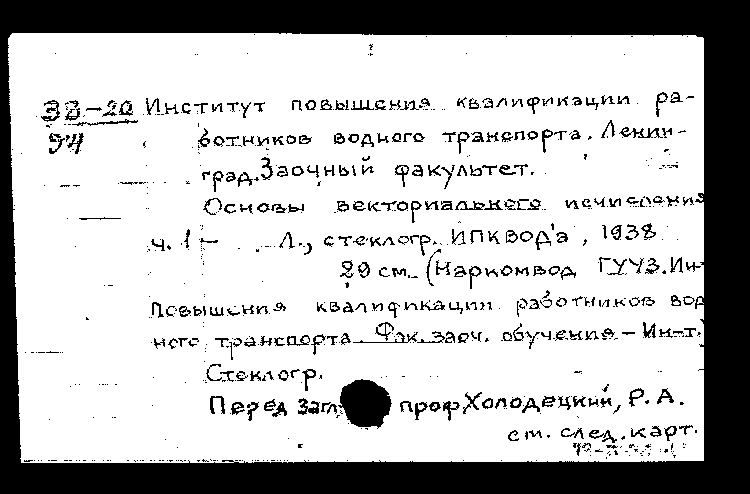 38-20 Институт повышения квалификации ра-
94 ботников водного транспорта. Ленин-
град. Заочный факультет.
Основы векториального исчисления
ч. 1 – Л., стеклогр. ИПКВОД'а, 1938
29 см. (Наркомвод ГУУЗ. Ин-
повышения квалификации работников вод
ного транспорта. Фак. заоч. обучения – Ин-т.)
Стеклогр.
Перед загл. проф. Холодецкий, Р. А.
см. след. карт.